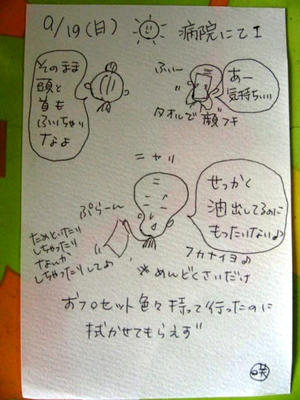 9/19(日) 病院にて I
そのまま
頭と
首も
ふいちゃい
なよ
ふぃー
あー
気持ちいい
タオルで顔フキ
ニヤリ
せっかく
油出してるのに
もったいない♪
ぷらーん
フカナイヨ♪
※めんどくさいだけ
ためといたり
しちゃったり
なんか
しちゃったりしてよ
おフロセット色々持って行ったのに
拭かせてもらえず
咲